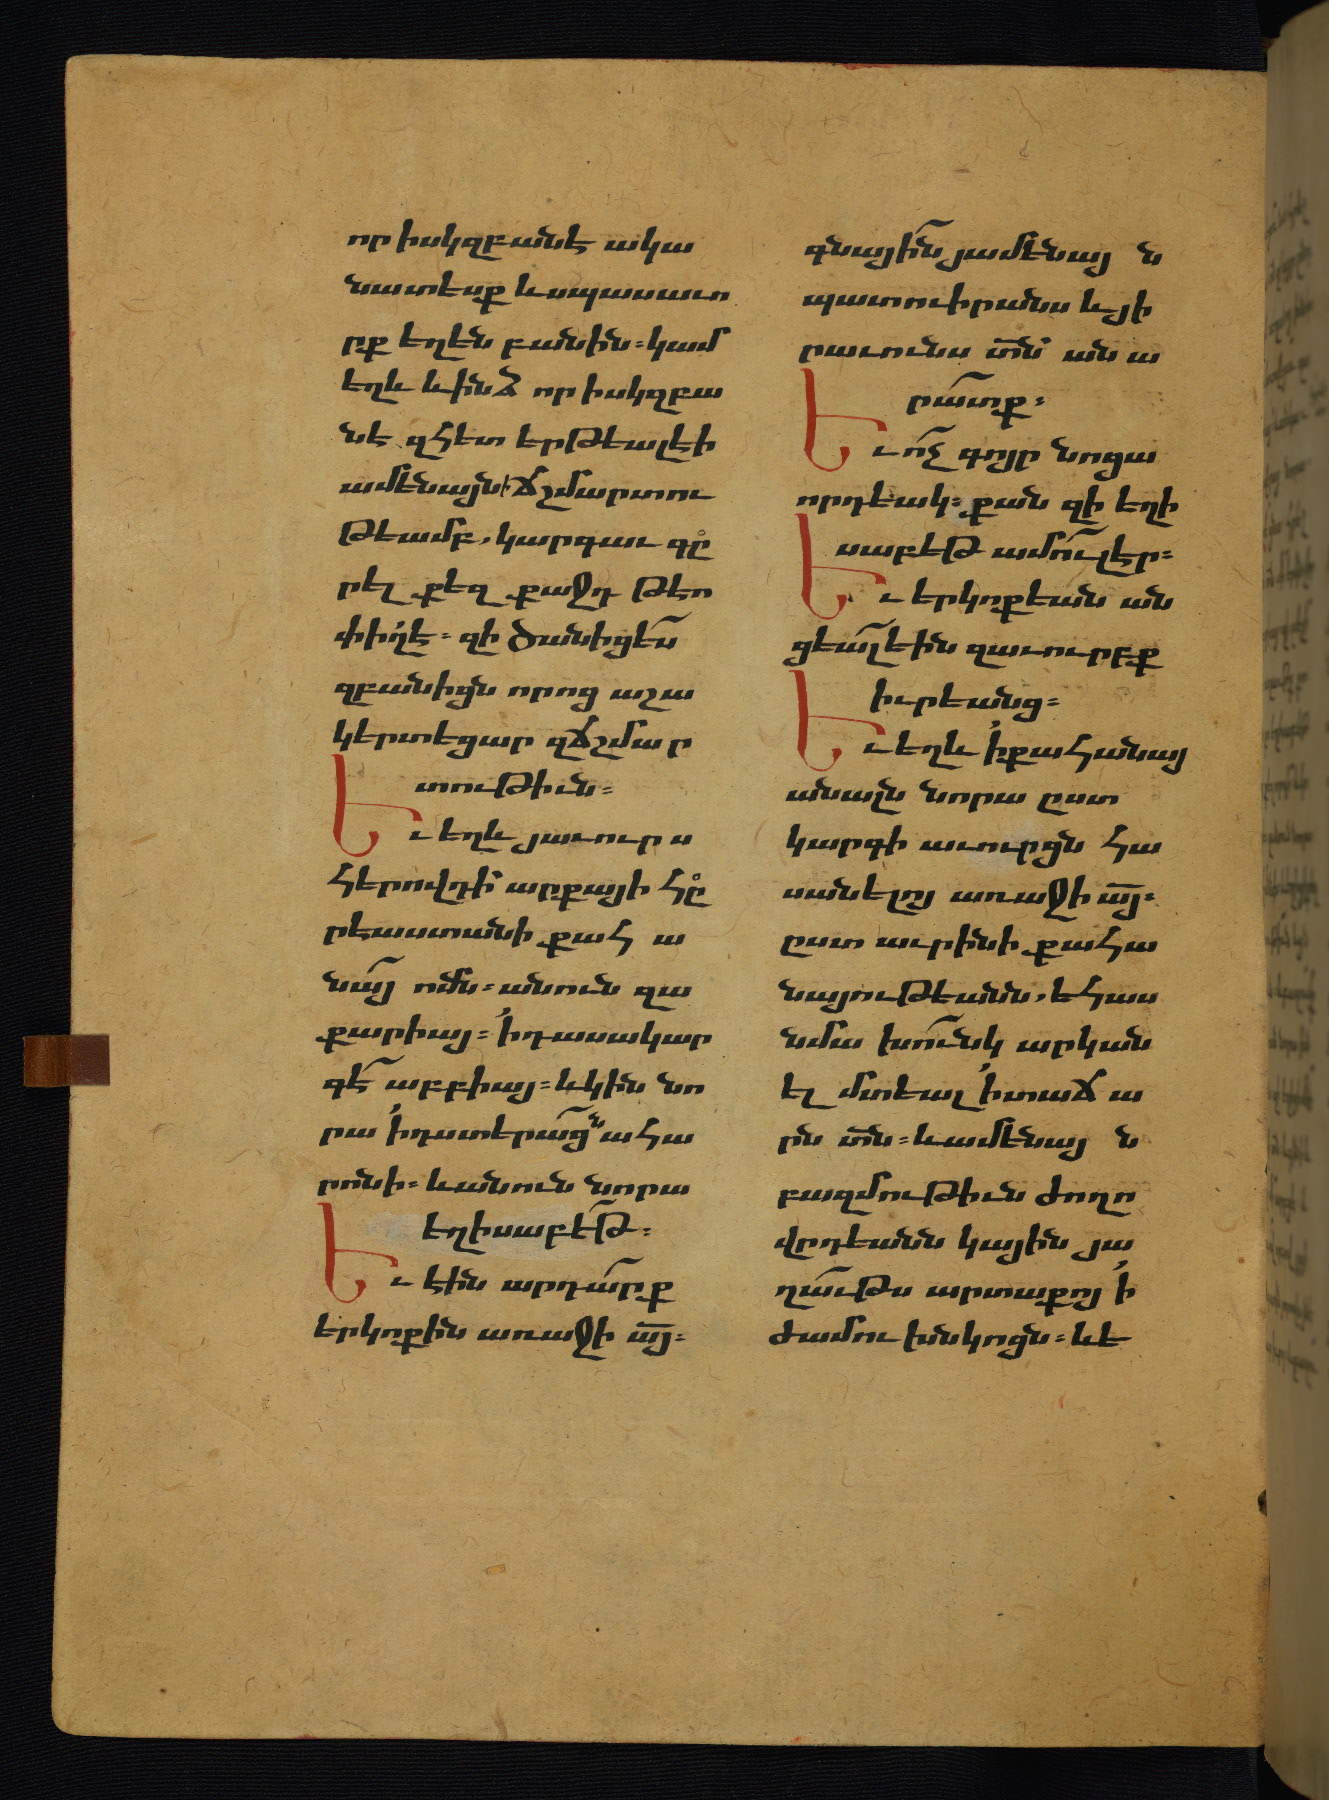 որ իսկզբանէ ակա
նատեսք և սպասաւո
րք եղեն բանին։ կամ
եղև և ինձ որ իսկզբա
նէ զհետ երթեալ էի
ամենայնի ճշմարտու
թեամբ, կարգաւ գը
րել քեզ քաջդ թէո
փիղէ։ զի ծանիցես
զբանիցն որոց աշա
կերտեցար զճշմար
տութիւն։
Եւ եղև յաւուրս
հերովդի արքայի հը
րէաստանի քահ ա
նայ ոմն։ անուն զա
քարիայ։ ի դասակար
գէ աբբիայ։ և կին նո
րա ի դստերացն ահա
րոնի։ և անուն նորա
եղիսաբեթ։
Եւ էին արդարք
երկոքին առաջի այ։
գնային յամենայ ն
պատուիրանս և յի
րաւունս տն ան ա
րատք։
Եւ ոչ գոյր նոցա
որդեակ։ քան զի եղի
սաբեթ ամուլ էր։
Եւ երկոքեան ան
ցեալ էին զաւուրբք
իւրեանց։
Եւ եղև ի քահանայ
անալն նորա ըստ
կարգի աւուրցն հա
սանելոյ առաջի այ։
ըստ աւրինի քահա
նայութեանն, եհաս
նմա խունկ արկան
ել մտեալ ի տաճ ա
րն տն։ և ամենայ ն
բազմութիւն ժողո
վըրդեանն կային յա
ղաւթս արտաքոյ ի
ժամու խնկոցն։ և ե